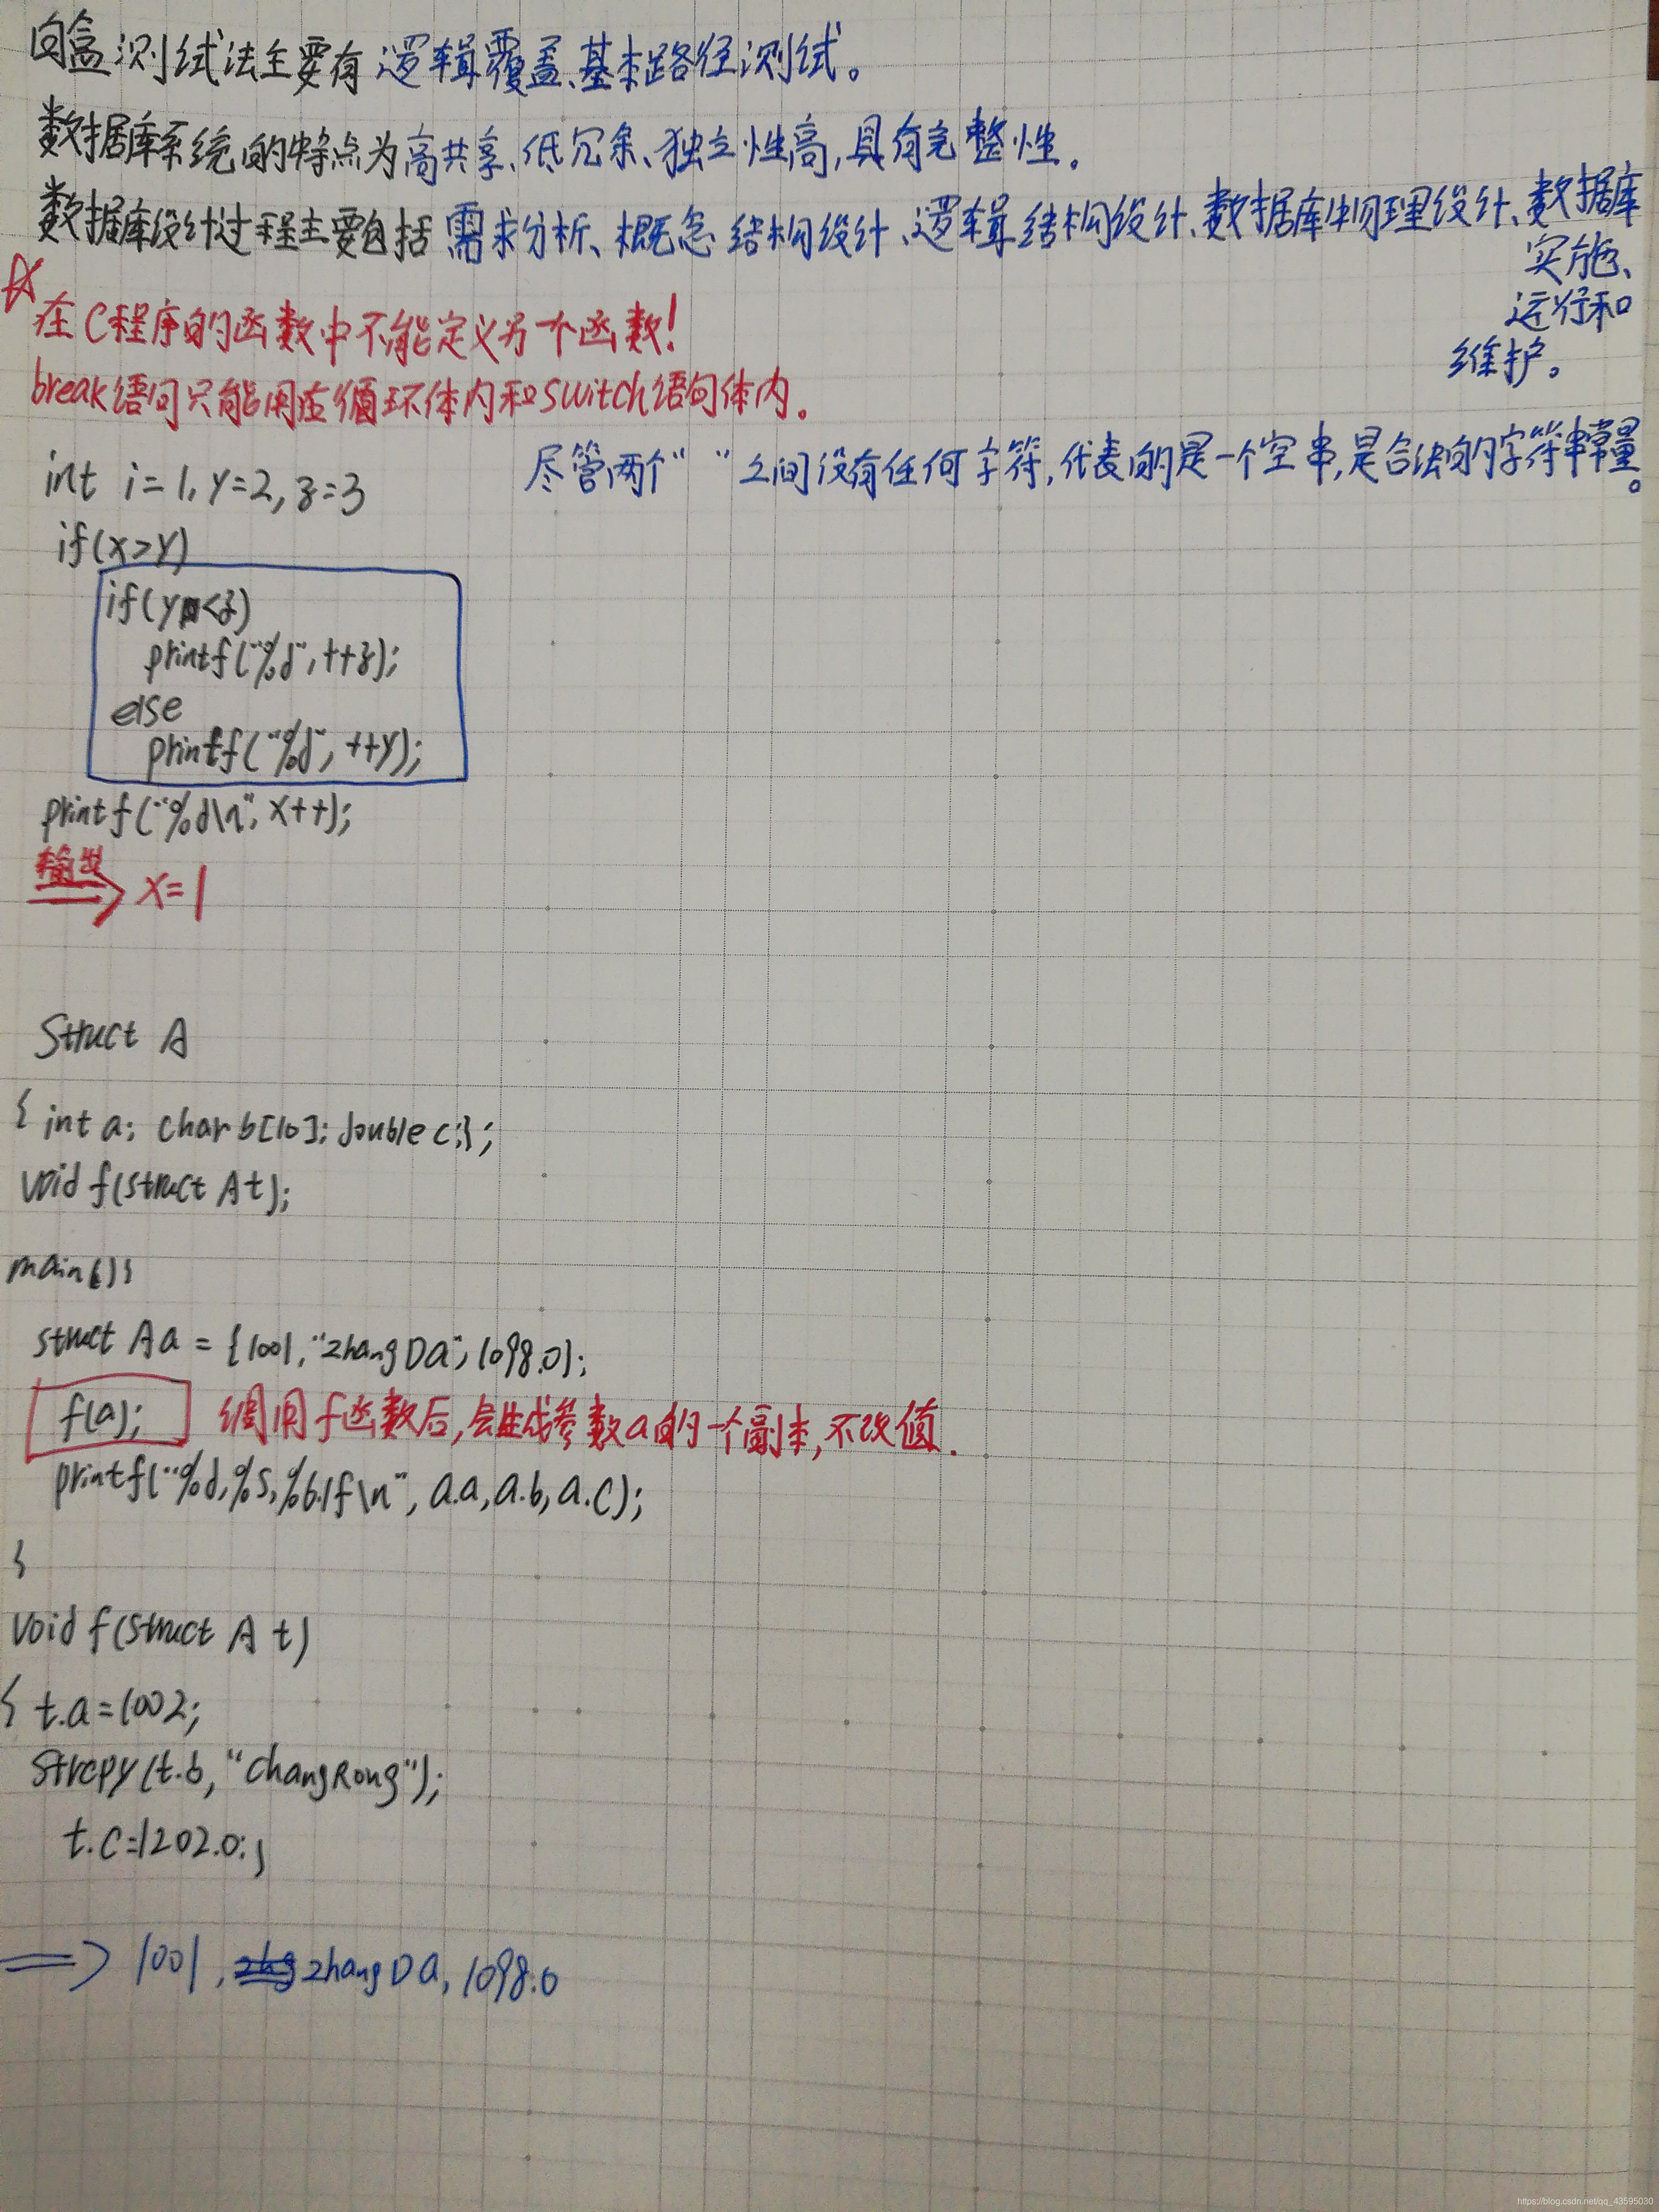 白盒测试法主要有逻辑覆盖、基本路径测试。
数据库系统的特点为高共享、低冗余、独立性高,具有完整性。
数据库设计过程主要包括需求分析、概念结构设计、逻辑结构设计、数据库物理设计、数据库
实施、
运行和
维护。
☆在C程序的函数中不能定义另一个函数!
break语句只能用在循环体内和switch语句体内。
int i=1,y=2,z=3
尽管两个" "之间没有任何字符,代表的是一个空串,是合法的字符串常量。
if(x>y)
if(y<z)
printf("%d",++z);
else
printf("%d",++y);
printf("%d\n",x++);
输出
x=1
Struct A
{ int a; char b[10]; double c;};
void f(struct A t);
main(){
struct A a = {1001,"zhangDa",1098.0};
f(a); 调用f函数后,会生成参数a的一个副本,不改值.
printf("%d,%s,%6.1f\n",a.a,a.b,a.c);
}
void f(struct A t)
{ t.a=1002;
strcpy(t.b,"changRong");
t.c=1202.0;}
=> 1001,zhangDa,1098.0
https://blog.csdn.net/qq_43595030